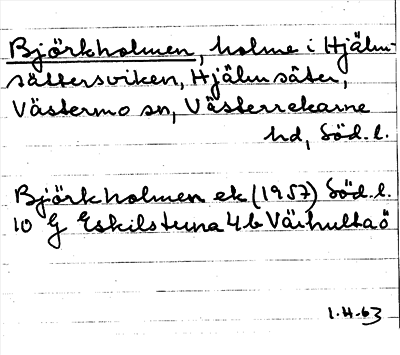 Björkholmen, holme i Hjälm-
sättersviken, Hjälmsäter,
Västermo sn, Västerrekarne
hd, Söd. l.
Björkholmen ek (1957) Söd. l.
10 G Eskilstuna 4 b Väihultaö
1.H.63